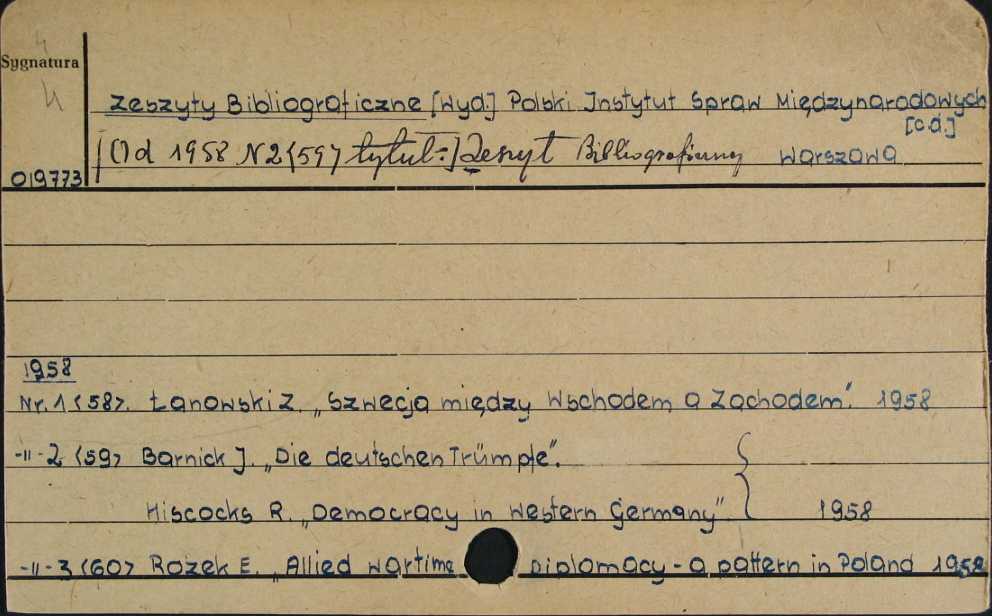 4
Sygnatura
4
Zeszyty Bibliograficzne [Wyd.] Polski Instytut Spraw Międzynarodowych
[c.d.]
[Od 1958 N2<59> tytuł:] Zeszyt Bibliograficzny Warszawa
019773
1958
Nr. 1 <58>. Łanowski Z. „Szwecja między Wschodem a Zachodem". 1958
-"- 2 <59> Barnick J. „Die deutschen Trümpfe".
Hiscocks R. „Democracy in Western Germany" 1958
-"- 3 <60> Rożek E. „Allied Wartime Diplomacy - a pattern in Poland 1958